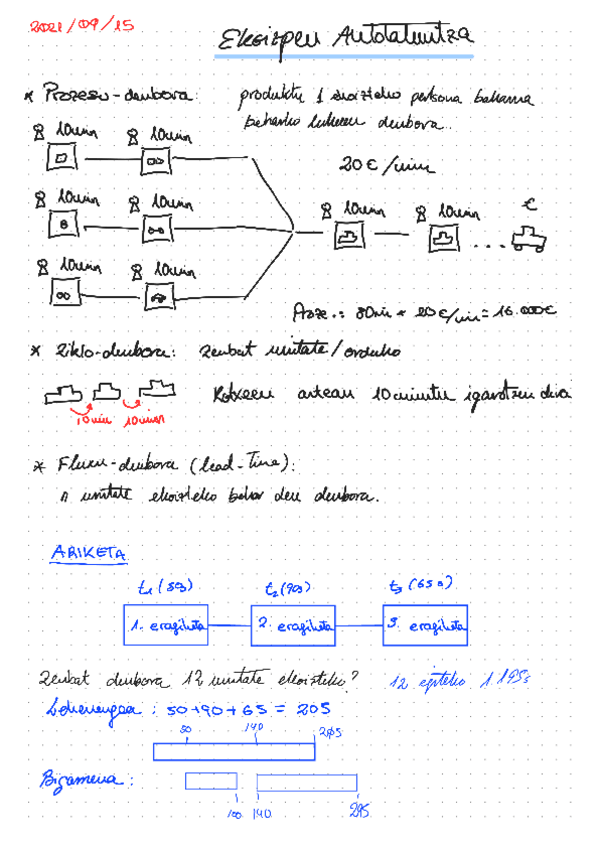 2021/09/15
Ekoizpen Autotaluntza
* Prozesu-denbora: produktu 1 ekoizteko pertsona bakarra
beharko lukeen denbora..
10min 10min
20€/min
10min 10min 10min 10min €
...
10min 10min
Proze.: 80min * 20€/min = 16.000€
* Ziklo-denbora: zenbat unitate/orduko
Kotxeen artean 10 minutu igarotzen dira
10min 10min
* Fluxu-denbora (lead-Time):
n unitate ekoizteko behar den denbora.
ARIKETA
t1 (50s) t2 (90s) t3 (65s)
1. eragiketa 2. eragiketa 3. eragiketa
Zenbat denbora 12 unitate ekoizteko? 12 egiteko 1195s
Lehenengoa: 50+90+65 = 205
50 140 205
Bigarrena:
100 140 295